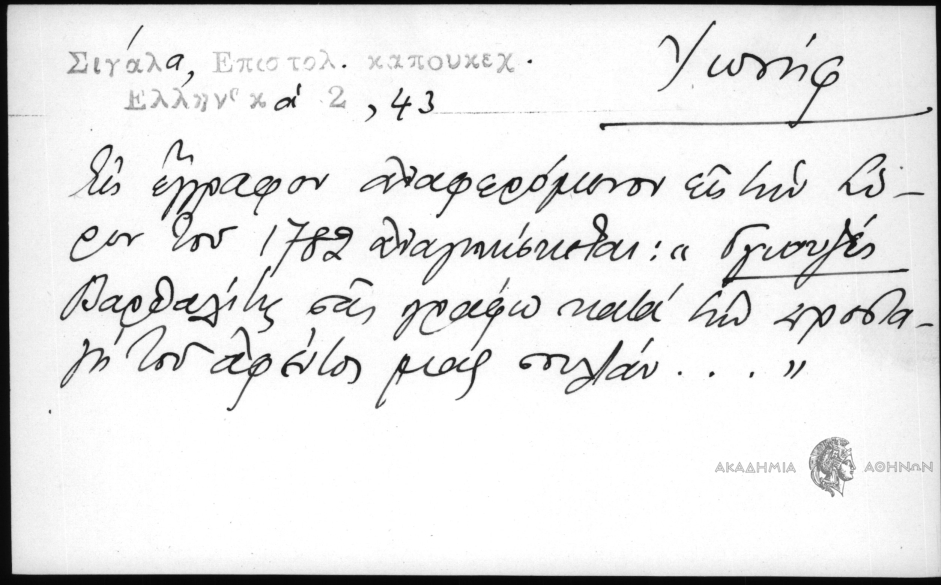 Σιγάλα, Επιστολ. καπουκεχ.
Ελληνικά 2, 43
Ἰωσήφ
Εἰς ἔγγραφον ἀναφερόμενον εἰς τὴν Σῦ-
ρον τοῦ 1782 ἀναγινώσκεται: «
Βαρθαλίτης σᾶς γράφω κατὰ τὴν προστα-
γὴ τοῦ ἀφέντος μας σουλτάν . . . »
ΑΚΑΔΗΜΙΑ ΑΘΗΝΩΝ